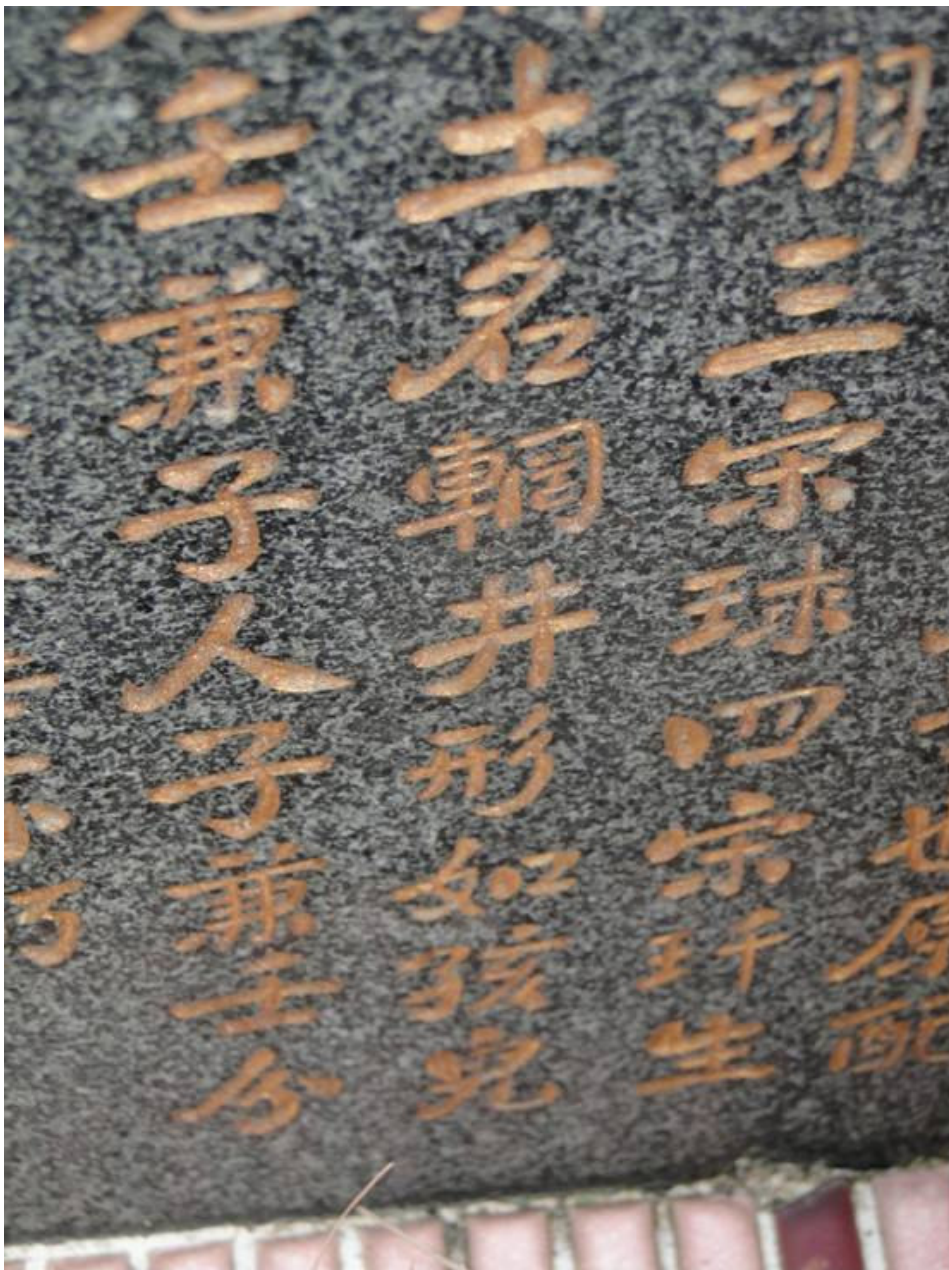 也原配
珝三宗球四宗玕生
土名輞井形如孩兒
壬兼子人子兼壬分